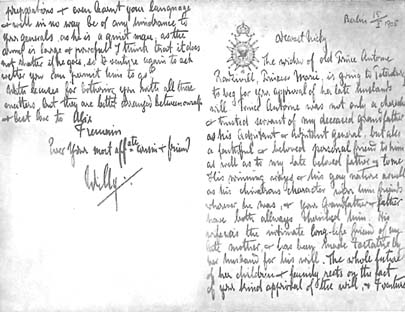 Berlin 1908
Dearest Nicky
The widow of old Prince Antoine
Radziwill, Princess Marie, is going to Petersburg
to beg for your approval of her late husbands
will. Prince Antoine was not only a
& trusted servant of my deceased grandfather
as his adjutant general, but also
a faithful & beloved personal friend to him
as well as to my late beloved father & to me.
His winning ways & his gay nature as well
as his chivalrous character won him friends
wherever he was, & your Grandfather & Father
have both always him. His
the intimate life-long friend of my
mother, & has been made by
her husband for his will. The whole future
of her children & family rests on the fact
of your kind approval of the will, & I venture
preparations & even learnt your language
& will in no way be of any hindrance to
your generals, as he is a quiet man, as the
is large & I think that it does
not matter if he goes, so I venture again to ask
whether you can permit him to go?
With excuses for bothering you with all these
matters, but they are better arranged between ourselves
& best love to Alix
I remain
Ever Your most affate cousin & friend
Willy